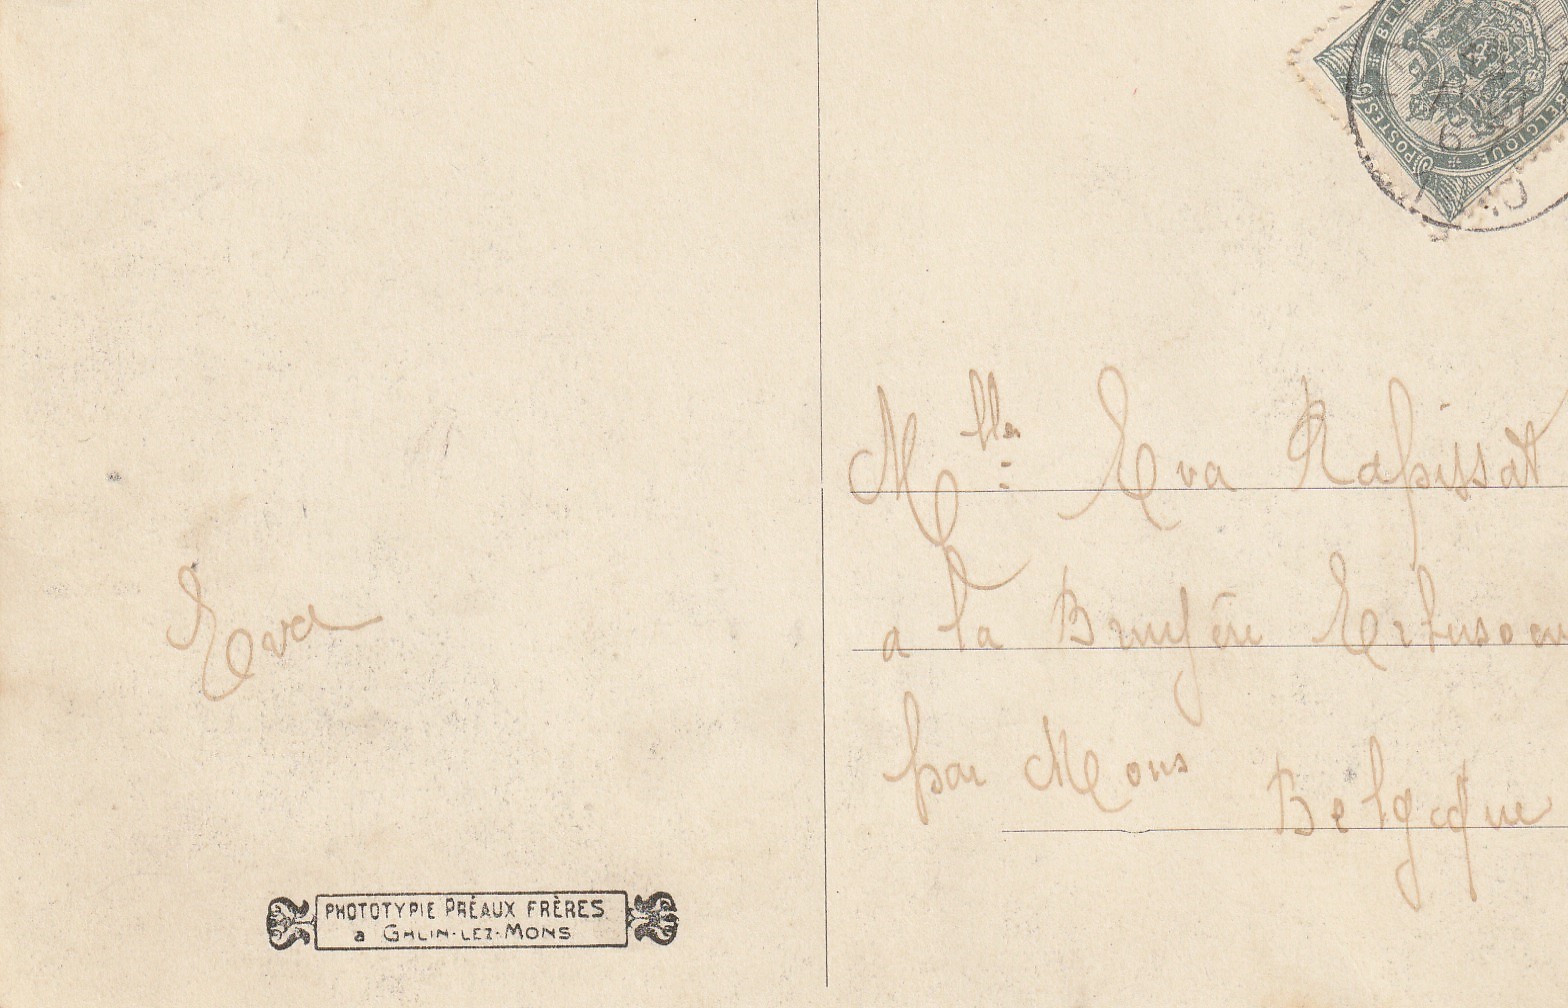 BELGIQUE POSTES
Mlle Eva Rapissat
a la Bruyére
par Mons
Belgique
Eva
PHOTOTYPIE PRÉAUX FRÈRES
a GHLIN-LEZ-MONS